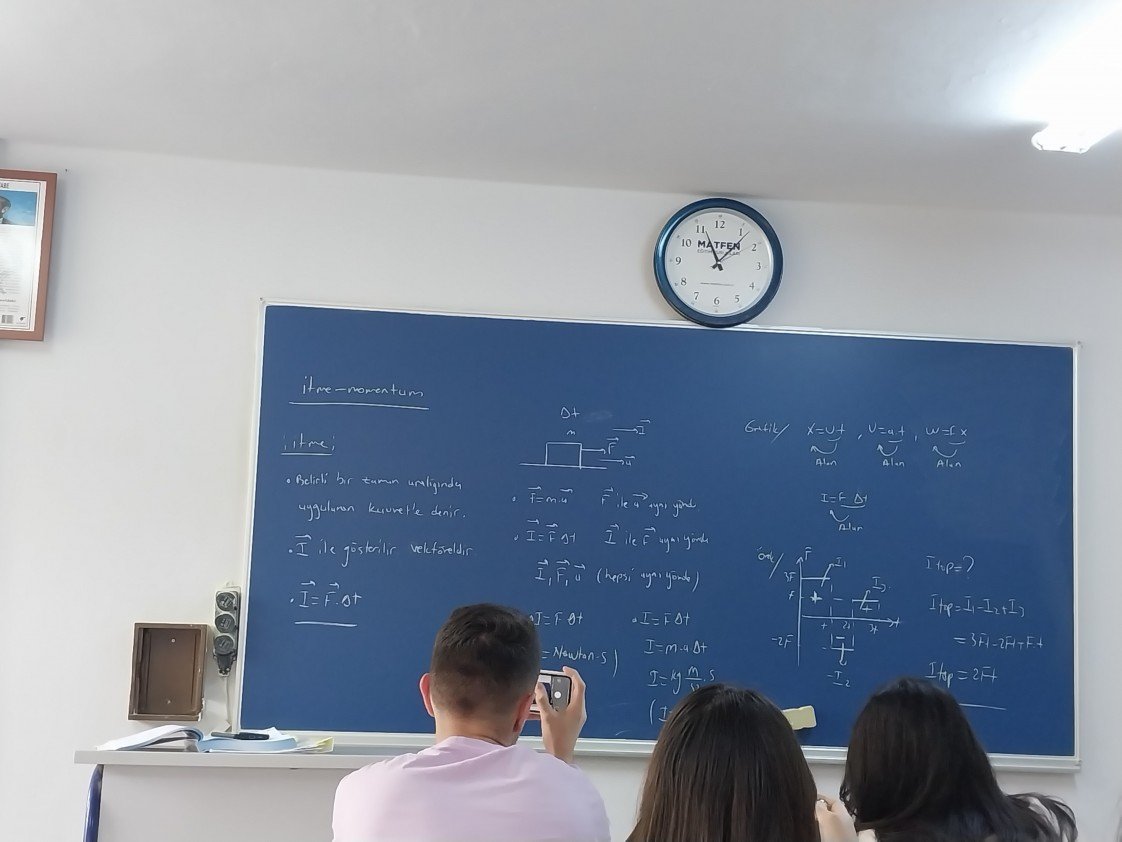 itme-momentum
itme;
• Belirli bir zaman aralığında
uygulanan kuvvet'e denir.
• I ile gösterilir vektöreldir
• I = F.Δt
Δt
m
I
F
a
• F=m.a F ile a aynı yönde
• I=F Δt I ile F aynı yönde
I, F, a (hepsi aynı yönde)
I=F Δt
= Newton.S)
• I=F Δt
I=m.a Δt
I=kg m .S
(I
Grafik/ X=V.t , V=a.t , W=F.x
Alan Alan Alan
I=F Δt
Alan
örn/
F
3F
F
-2F
t 2t 3t
+
-
I1
I3
-I2
Itop=?
Itop=I1-I2+I3
=3Ft-2Ft+F.t
Itop=2Ft
12
1
2
3
4
5
6
7
8
9
10
11
MATFEN